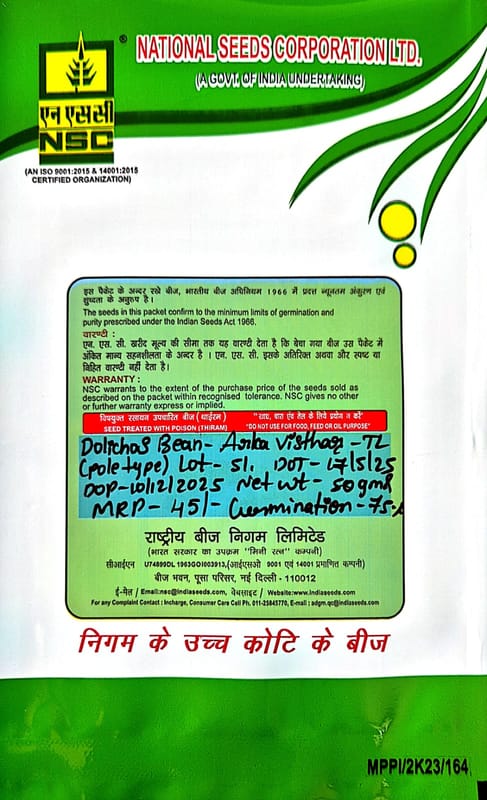 NATIONAL SEEDS CORPORATION LTD.
(A GOVT. OF INDIA UNDERTAKING)
एन एस सी
NSC
®
(AN ISO 9001:2015 & 14001:2015
CERTIFIED ORGANIZATION)
इस पैकेट के अन्दर रखे बीज, भारतीय बीज अधिनियम 1966 में प्रदत्त न्यूनतम अंकुरण एवं
शुष्दता के अनुरुप है।
The seeds in this packet confirm to the minimum limits of germination and
purity prescribed under the Indian Seeds Act 1966.
वारण्टी :
एन. एस. सी. खरीद मूल्य की सीमा तक यह वारण्टी देता है कि बेचा गया बीज उस पैकेट में
अंकित मान्य सहनशीलता के अन्दर है । एन. एस. सी. इसके अतिरिक्त अथवा और स्पष्ट या
विहित वारण्टी नहीं देता है।
WARRANTY :
NSC warrants to the extent of the purchase price of the seeds sold as
described on the packet within recognised tolerance. NSC gives no other
or further warranty express or implied.
विषयुक्त रसायन उपचारित बीज (थाईरम)
SEED TREATED WITH POISON (THIRAM)
"खाद्य, चारा एवं तेल के लिये प्रयोग न करें"
"DO NOT USE FOR FOOD, FEED OR OIL PURPOSE"
Dolichos Bean- Arka Visthar - TL
(pole type) Lot - 51. DOT - 17/5/25
DOP - 10/12/2025 Net wt - 50 gms
MRP - 45/- Germination - 75.
राष्ट्रीय बीज निगम लिमिटेड
(भारत सरकार का उपक्रम "मिनी रत्न" कम्पनी)
सीआईएन U74899DL1963GOI003913,(आईएसओ 9001 एवं 14001 प्रमाणित कम्पनी)
बीज भवन, पूसा परिसर, नई दिल्ली - 110012
ई-मेल / Email:nsc@indiaseeds.com, वेबसाइट / Website:www.indiaseeds.com
For any Complaint Contact : Incharge, Consumer Care Cell Ph. 011-25845770, E-mail : adgm.qc@indiaseeds.com
निगम के उच्च कोटि के बीज
MPPI/2K23/164